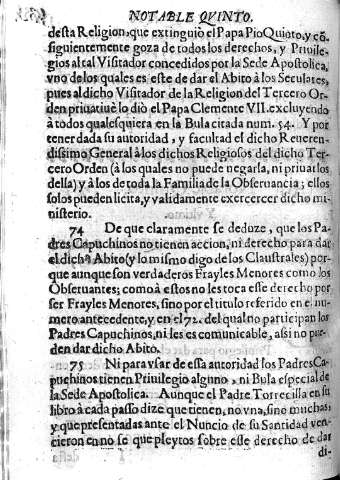 NOTABLE QVINTO.
desta Religion, que extinguiò el Papa Pio Quioto, y cõ-
siguientemente goza de todos los derechos, y Privile-
gios al tal Visitador concedidos por la Sede Apostolica,
vno de los quales es este de dar el Abito à los Seculares,
pues al dicho Visitador de la Religion del Tercero Or-
den privatiuè lo diò el Papa Clemente VII. excluyendo
à todos qualesquiera en la Bula citada num. 54. Y por
tener dada su autoridad, y facultad el dicho Reueren-
dissimo General à los dichos Religiosos del dicho Ter-
cero Orden (à los quales no puede negarla, ni priuarlos
della) y à los de toda la Familia de la Obseruancia; ellos
solos pueden licita, y validamente exercercer dicho mi-
nisterio.
74 De que claramente se deduze, que los Pa-
dres Capuchinos no tienen accion, ni derecho para dar
el dichº Abito (y lo mismo digo de los Claustrales) por-
que aunque son verdaderos Frayles Menores como los
Obseruantes; como à estos no les toca esse derecho por
ser Frayles Menores, sino por el titulo referido en el nu-
mero antecedente, y en el 72. del qual no participan los
Padres Capuchinos, ni les es comunicable, assi no pue-
den dar dicho Abito.
75 Ni para vsar de essa autoridad los Padres Ca-
puchinos tienen Priuilegio alguno, ni Bula especial de
la Sede Apostolica. Aunque el Padre Torrecilla en su
libro à cada passo dize que tienen, no vna, sino muchas;
y que presentadas ante el Nuncio de su Santidad ven-
cieron en no se que pleytos sobre este derecho de dar
di-